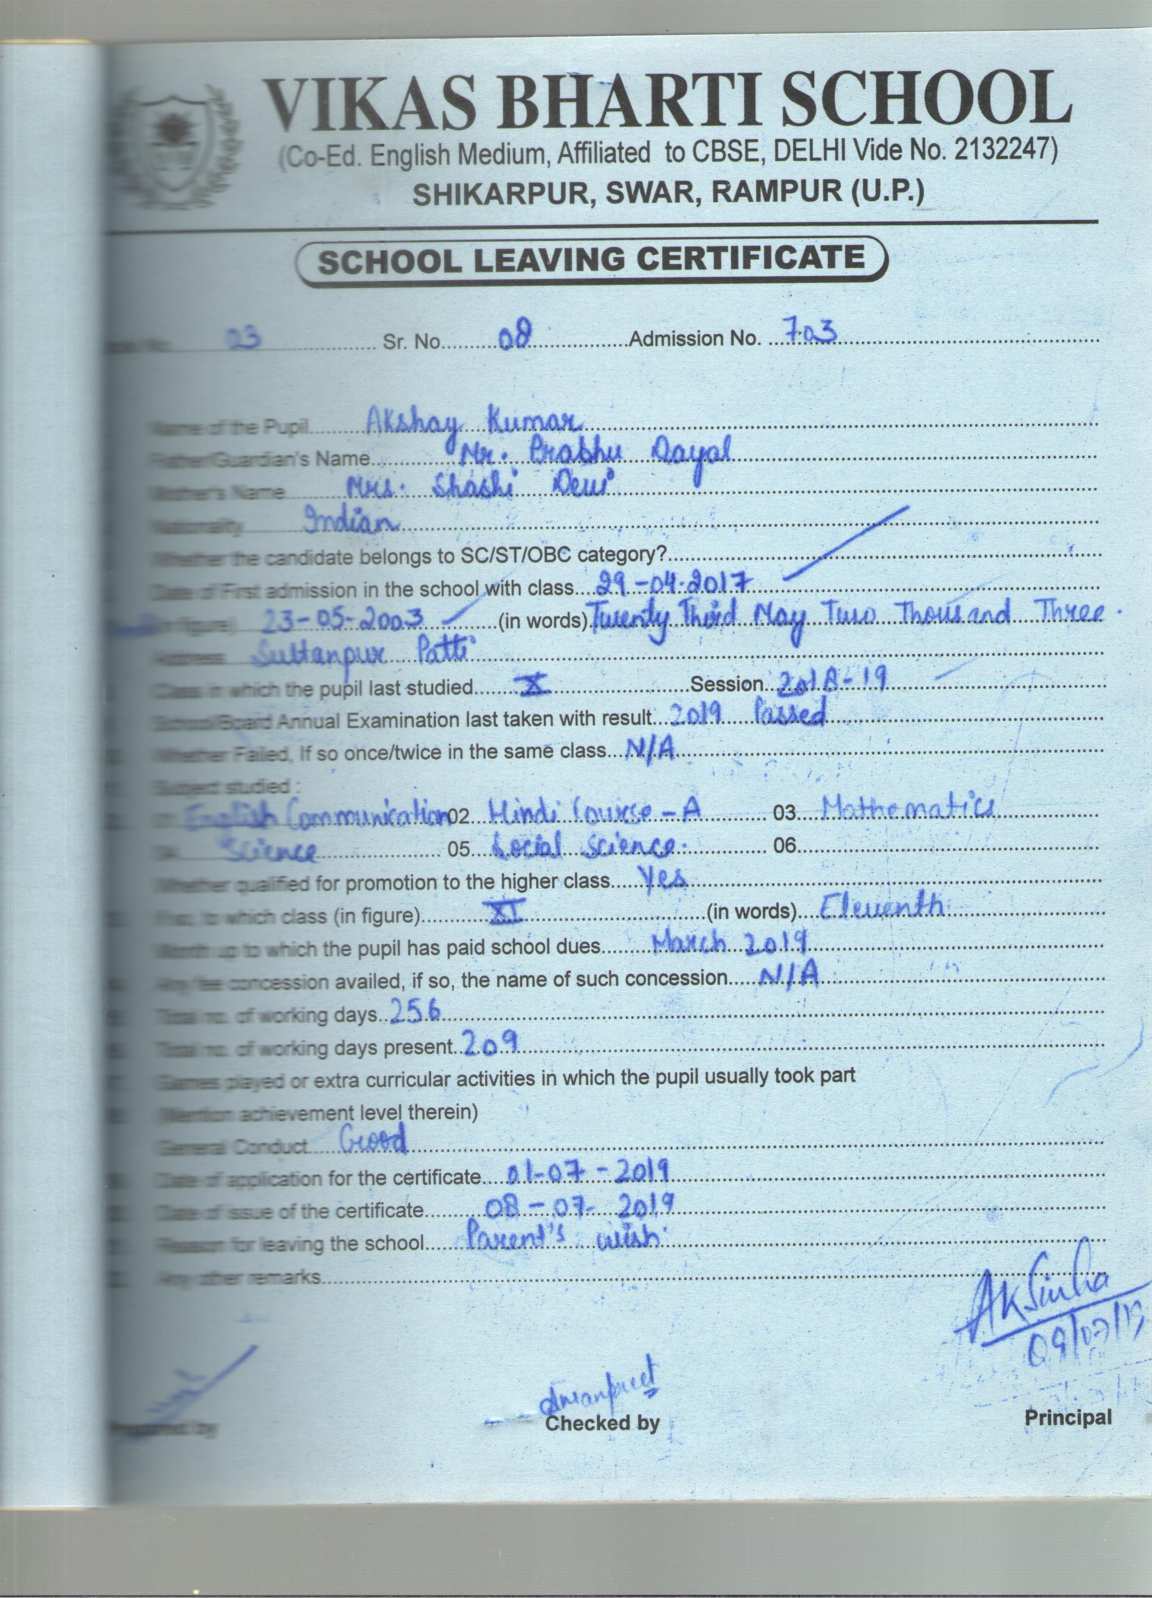 VIKAS BHARTI SCHOOL
(Co-Ed. English Medium, Affiliated to CBSE, DELHI Vide No. 2132247)
SHIKARPUR, SWAR, RAMPUR (U.P.)
SCHOOL LEAVING CERTIFICATE
03 Sr. No. 08 Admission No. 703
Name of the Pupil Akshay Kumar
Father/Guardian's Name Mr. Prabhu Dayal
Mother's Name Mrs. Shashi Devi
Nationality Indian
Whether the candidate belongs to SC/ST/OBC category?
Date of First admission in the school with class 29-04-2017
(in figure) 23-05-2003 (in words) Twenty Third May Two Thousand Three.
Address Sultanpur Patti
Class in which the pupil last studied X Session 2018-19
School/Board Annual Examination last taken with result 2019 Passed
Whether Failed, If so once/twice in the same class N/A
Subject studied :
English Communication 02 Hindi Course-A 03 Mathematics
Science 05 Social Science. 06
Whether qualified for promotion to the higher class Yes
to which class (in figure) XI (in words) Eleventh
Month up to which the pupil has paid school dues March 2019
Any fee concession availed, if so, the name of such concession N/A
Total no. of working days 256
Total no. of working days present 209
Games played or extra curricular activities in which the pupil usually took part
(Mention achievement level therein)
General Conduct Good
Date of application for the certificate 01-07-2019
Date of issue of the certificate 08-07-2019
Reason for leaving the school Parent's wish.
Any other remarks
AKSinha
Amanpreet
Prepared by Checked by Principal